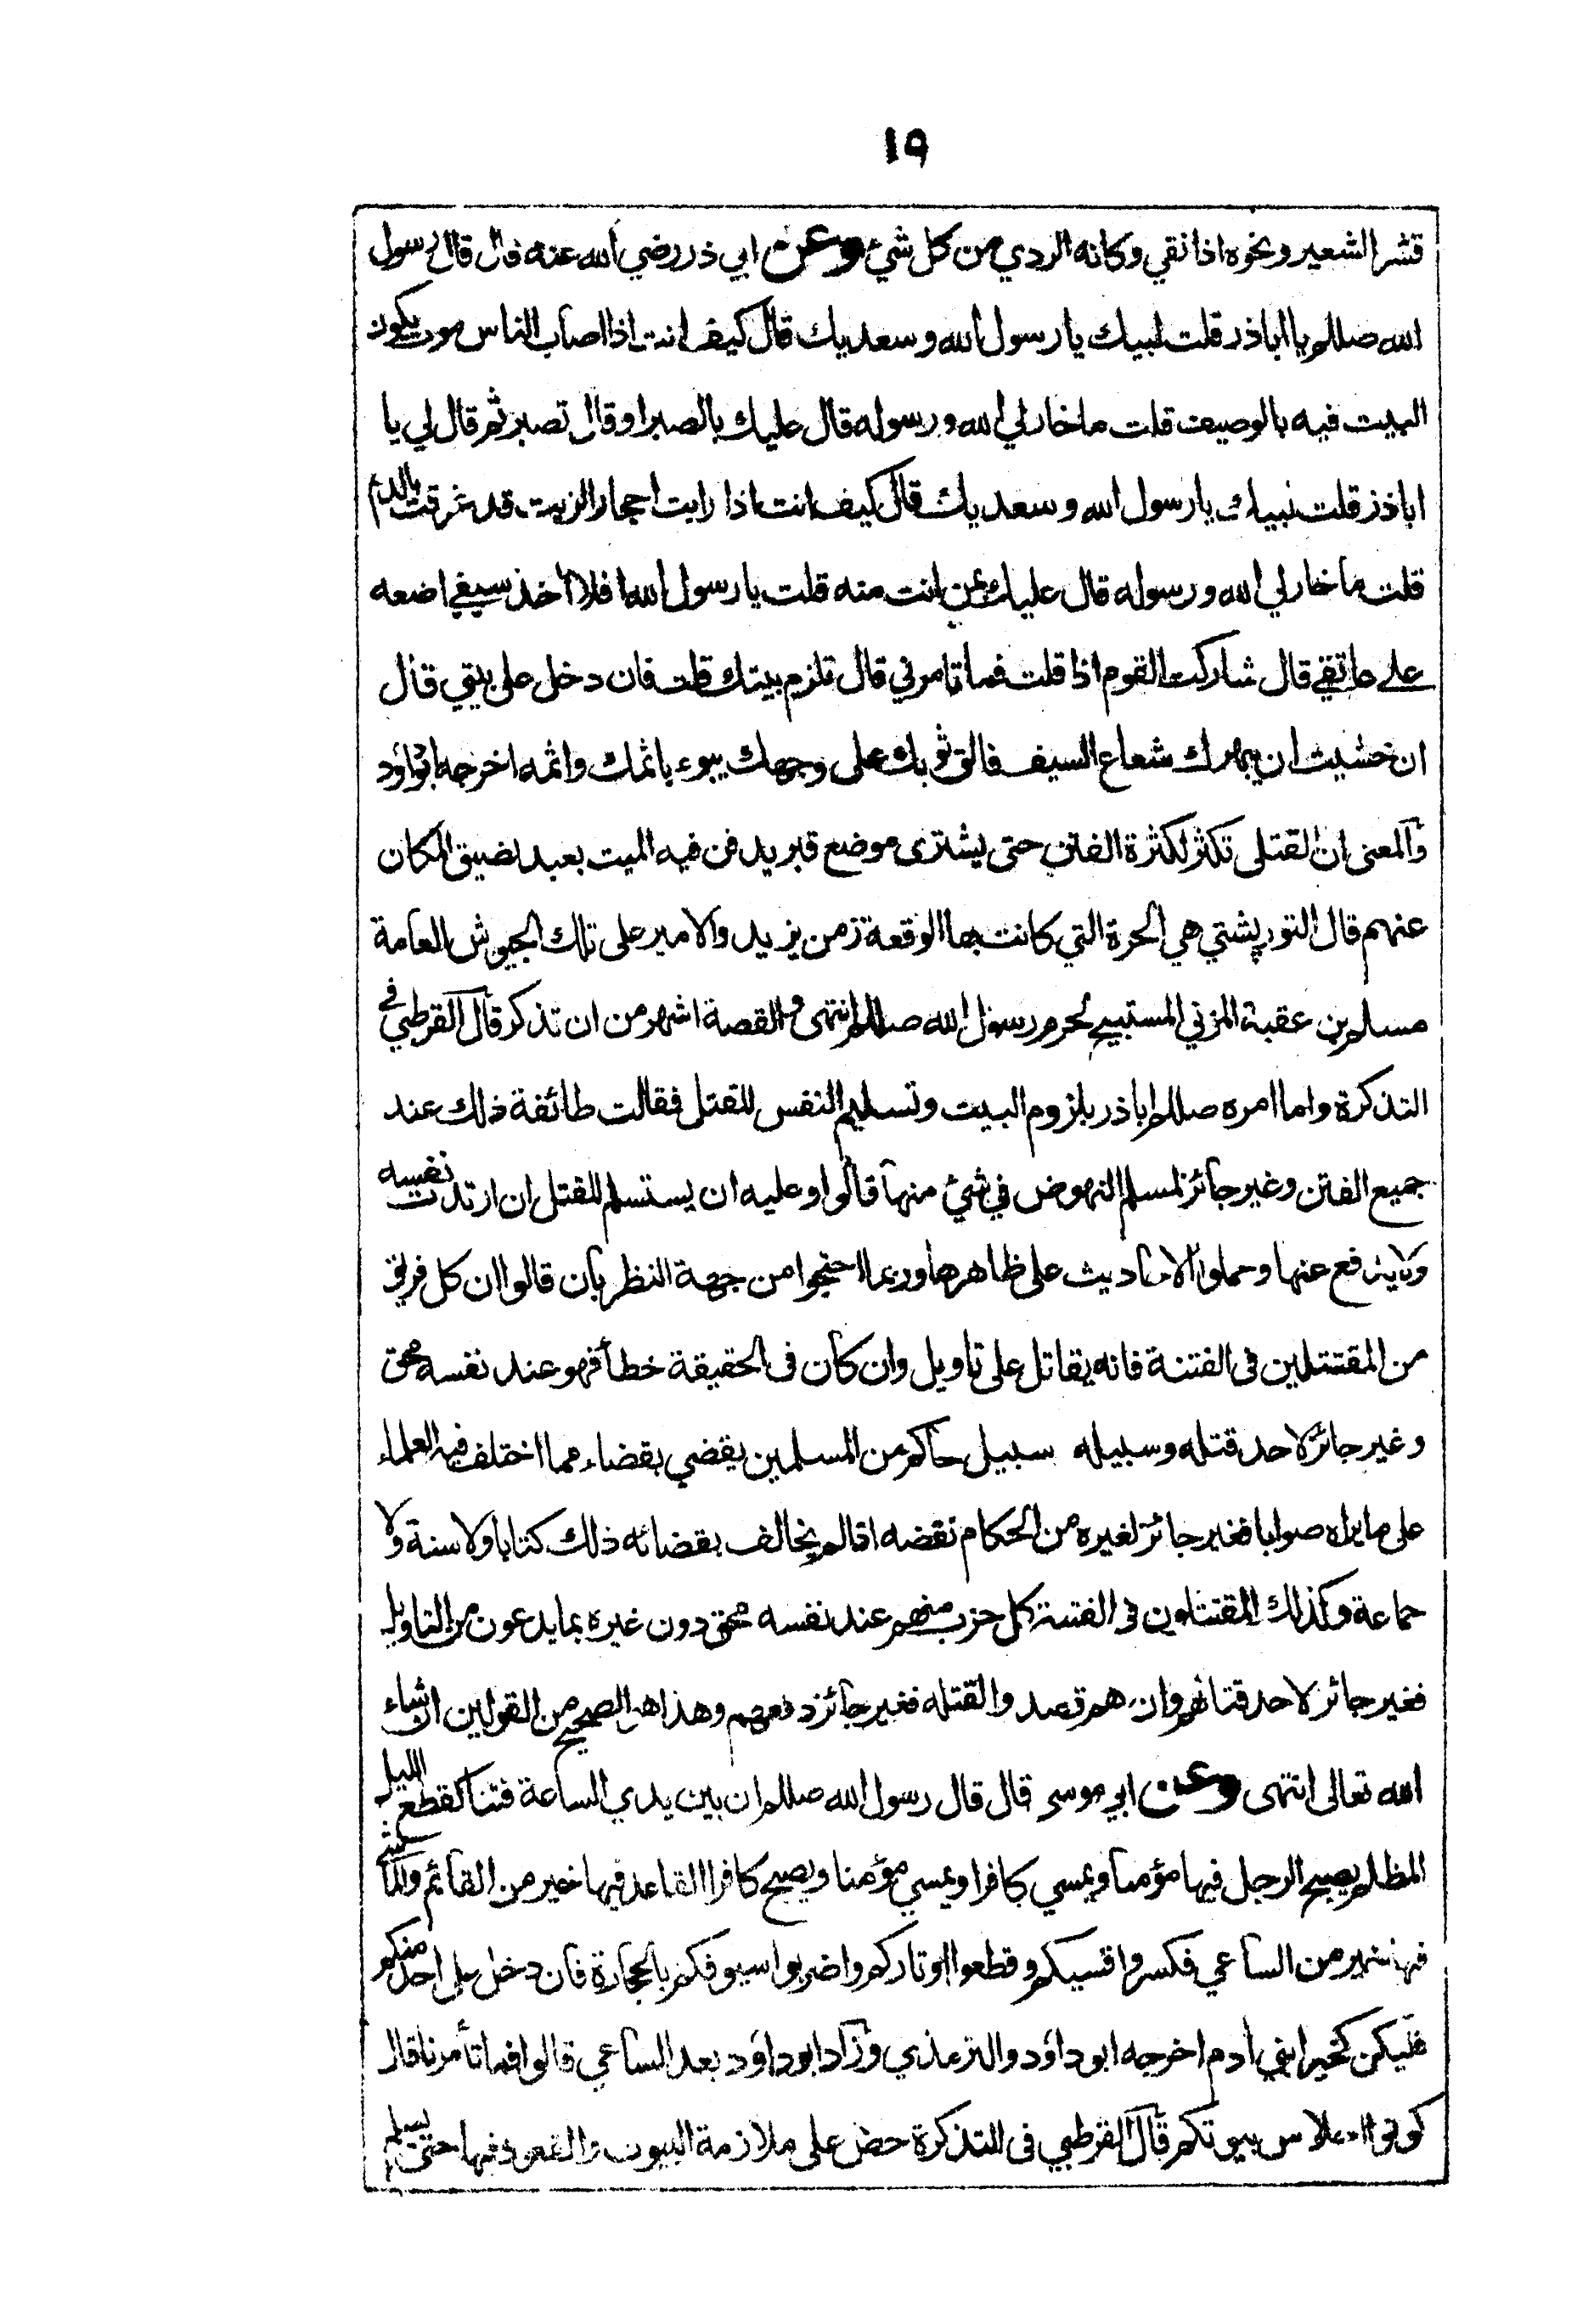 ١٩
قشر الشعير ونحوه اذا نقي وكانه الردي من كل شئ وعن ابي ذر رضي الله عنه قال قال رسول
الله صللم يا اباذر قلت لبيك يا رسول الله وسعديك قال كيف انت اذا اصاب الناس موت يكون
البيت فيه بالوصيف قلت ما خار لي الله ورسوله قال عليك بالصبر او قال تصبر ثم قال لي يا
اباذر قلت لبيك يا رسول الله وسعديك قال كيف انت اذا رايت احجار الزيت قد غرقت بالدم
قلت ما خار لي الله ورسوله قال عليك بمن انت منه قلت يا رسول الله افلا اخذ سيفي اضعه
على عاتقي قال شاركت القوم اذا قلت فما تامرني قال تلزم بيتك قلت فان دخل على بيتي قال
ان خشيت ان يبهرك شعاع السيف فالق ثوبك على وجهك يبوء باثمك واثمه اخرجه ابوداؤد
والمعنى ان القتلى تكثر لكثرة الفتن حتى يشترى موضع قبر يدفن فيه الميت بعبد لضيق المكان
عنهم قال التورپشتي هي الحرة التي كانت بها الوقعة زمن يزيد والامير على تلك الجيوش العامة
مسلم بن عقبة المزني المستبيح لحرم رسول الله صللم انتهى والقصة اشهر من ان تذكر قال القرطبي في
التذكرة واما امره صللم اباذر بلزوم البيت وتسليم النفس للقتل فقالت طائفة ذلك عند
جميع الفتن وغير جائز لمسلم النهوض في شئ منها قالوا وعليه ان يستسلم للقتل ان ارتدت نفسه
ولا يدفع عنها وحملوا الاحاديث على ظاهرها وربما احتجوا من جهة النظر بان قالوا ان كل فريق
من المقتتلين فى الفتنة فانه يقاتل على تاويل وان كان فى الحقيقة خطأ فهو عند نفسه محق
وغير جائز لاحد قتله وسبيله سبيل حاكم من المسلمين يقضي بقضاء مما اختلف فيه العلماء
على ما يراه صوابا فغير جائز لغيره من الحكام نقضه اذا لم يخالف بقضائه ذلك كتابا ولا سنة ولا
جماعة وكذلك المقتتلون فى الفتنة كل حزب منهم عند نفسه محق دون غيره بما يدعون من التاويل
فغير جائز لاحد قتالهم وان هم قصدوا القتله فغير جائز دفعهم وهذا هو الصحيح من القولين ان شاء
الله تعالى انتهى وعن ابي موسى قال قال رسول الله صللم ان بين يدي الساعة فتنا كقطع الليل
المظلم يصبح الرجل فيها مؤمنا ويمسي كافرا ويمسي مؤمنا ويصبح كافرا القاعد فيها خير من القائم والماشي
فيها خير من الساعي فكسروا قسيكم وقطعوا اوتاركم واضربوا سيوفكم بالحجارة فان دخل على احد منكم
فليكن كخير ابني ادم اخرجه ابوداؤد والترمذي وزاد ابوداؤد بعد الساعي قالوا فما تأمرنا قال
كونوا احلاس بيوتكم قال القرطبي فى التذكرة حض على ملازمة البيوت والقعود فيها حتى يسلم